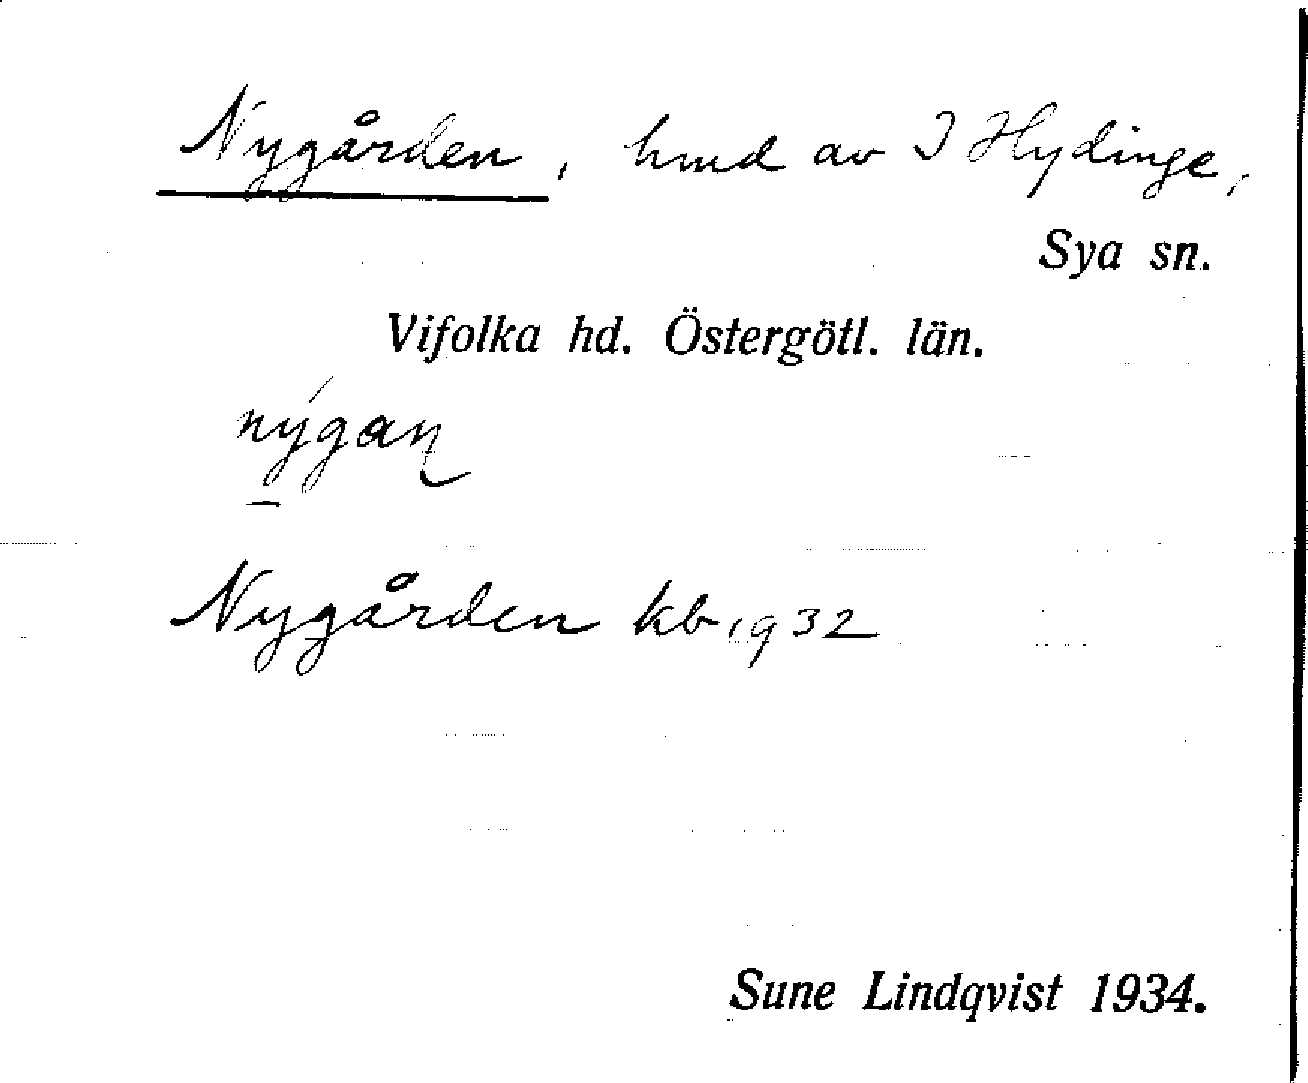 Nygården, hmd av I Hydinge,
Sya sn.
Vifolka hd. Östergötl. län.
nýgaɳ
Nygården kb 1932
Sune Lindqvist 1934.